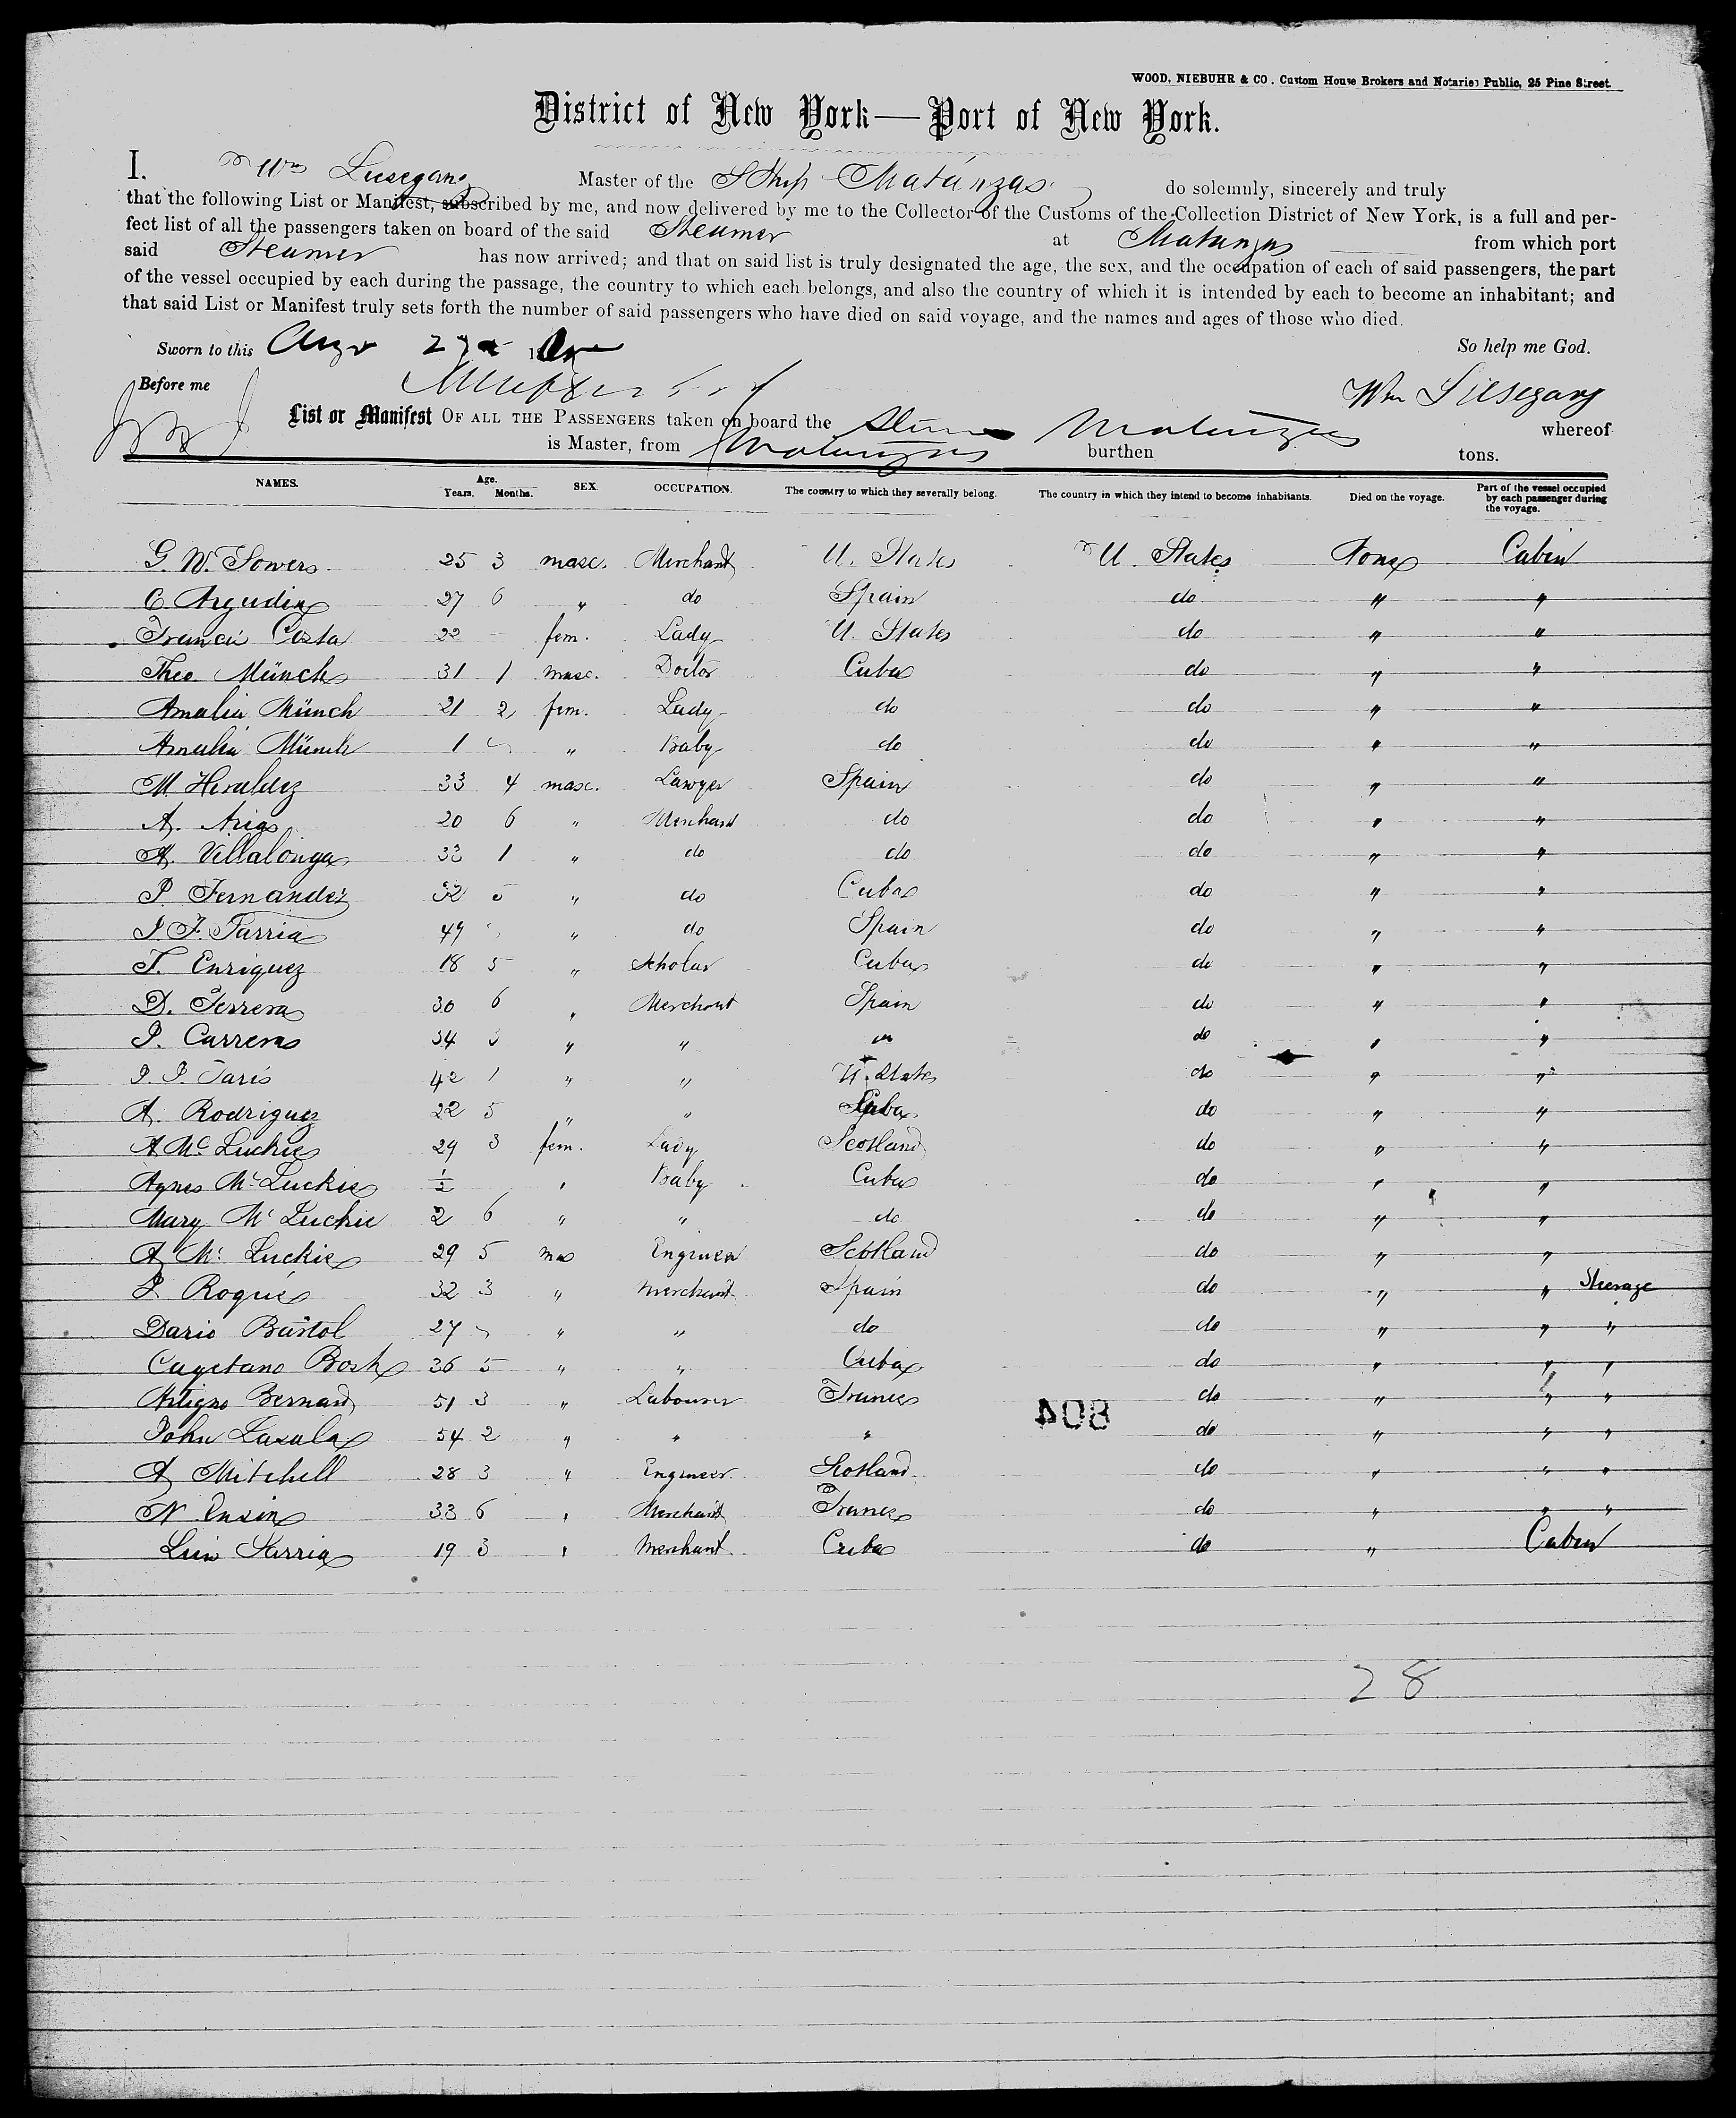 WOOD, NIEBUHR & CO., Custom House Brokers and Notaries Public, 25 Pine Street.
District of New York—Port of New York.
I. Wm Liesegang Master of the S Ship Matanzas do solemnly, sincerely and truly
that the following List or Manifest, subscribed by me, and now delivered by me to the Collector of the Customs of the Collection District of New York, is a full and per-
fect list of all the passengers taken on board of the said Steamer at Matanzas from which port
said Steamer has now arrived; and that on said list is truly designated the age, the sex, and the occupation of each of said passengers, the part
of the vessel occupied by each during the passage, the country to which each belongs, and also the country of which it is intended by each to become an inhabitant; and
that said List or Manifest truly sets forth the number of said passengers who have died on said voyage, and the names and ages of those who died.
Sworn to this So help me God.
Before me Wm Liesegang
List or Manifest OF ALL THE PASSENGERS taken on board the Matanzas whereof
is Master, from Matanzas burthen tons.
NAMES. Age. Years. Months. SEX. OCCUPATION. The country to which they severally belong. The country in which they intend to become inhabitants. Died on the voyage. Part of the vessel occupied by each passenger during the voyage.
G. W. Sowers 25 3 masc. Merchant U. States U. States None Cabin
C. Argudin 27 6 " do Spain do " "
Francis Costa 22 – fem. Lady U. States do " "
Theo. Münch 31 1 masc. Doctor Cuba do " "
Amalia Münch 21 2 fem. Lady do do " "
Amalia Münch 1 " Baby do do " "
M. Heraldez 33 4 masc. Lawyer Spain do " "
A. Arias 20 6 " Merchant do do " "
A. Villalonga 33 1 " do do do " "
P. Fernandez 32 5 " do Cuba do " "
J. F. Sarria 49 " do Spain do " "
T. Enriquez 18 5 " Scholar Cuba do " "
D. Ferrera 30 6 " Merchant Spain do " "
P. Carrera 34 3 " " " do " "
J. J. Faris 42 1 " " U. States do " "
A. Rodriguez 22 5 " " Cuba do " "
A Mc Luckie 29 3 fem. Lady Scotland do " "
Agnes Mc Luckie ½ " Baby Cuba do " "
Mary Mc Luckie 2 6 " " do do " "
A Mc Luckie 29 5 mas Engineer Scotland do " "
J. Roque 32 3 " Merchant Spain do " " Sterage
Dario Bastol 27 " " do do " " "
Cayetano Bosh 36 5 " " Cuba do " " "
Artigno Bernard 51 3 " Labourer France do " " "
John Lasala 54 2 " " " do " " "
A Mitchell 28 3 " Engineer Scotland do " " "
N. 33 6 " Merchant France do " " "
Luis Sarria 19 3 " Merchant Cuba do " Cabin
408
28